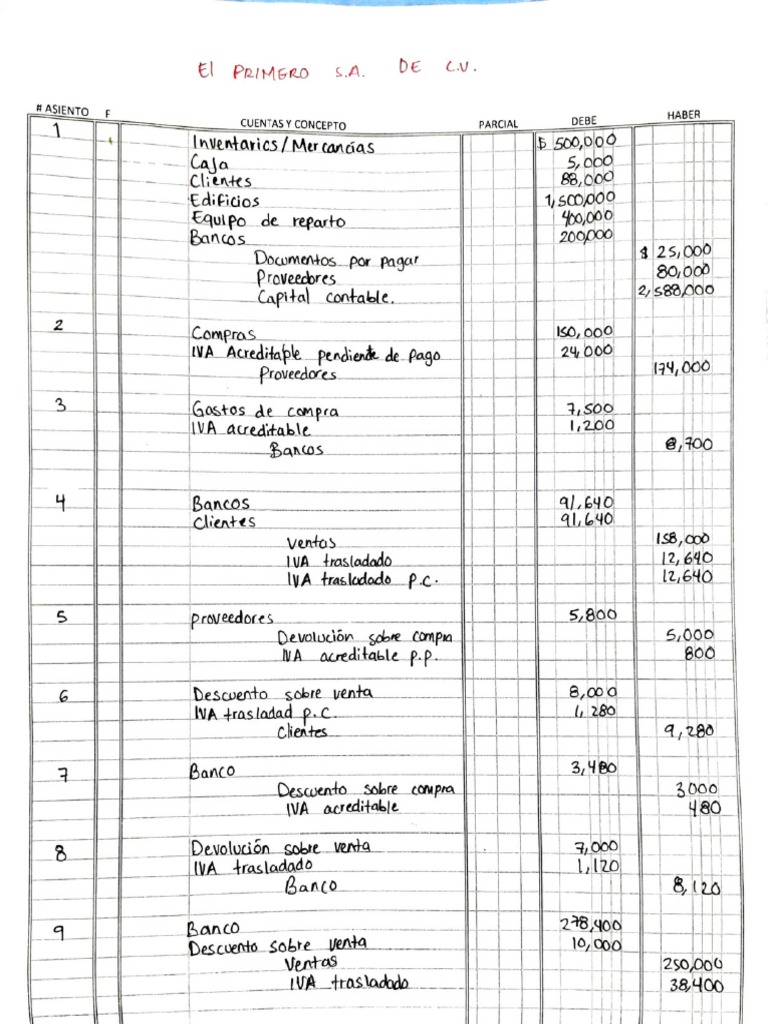 El PRIMERO S.A. DE C.V.
# ASIENTO F CUENTAS Y CONCEPTO PARCIAL DEBE HABER
1 Inventarios/Mercancías $ 500,000
Caja 5,000
Clientes 88,000
Edificios 1,500,000
Equipo de reparto 400,000
Bancos 200,000
Documentos por pagar $ 25,000
Proveedores 80,000
Capital contable. 2,588,000
2 Compras 150,000
IVA Acreditable pendiente de pago 24,000
Proveedores 174,000
3 Gastos de compra 7,500
IVA acreditable 1,200
Bancos 8,700
4 Bancos 91,640
Clientes 91,640
Ventas 158,000
IVA trasladado 12,640
IVA trasladado p.c. 12,640
5 proveedores 5,800
Devolución sobre compra 5,000
IVA acreditable p.p. 800
6 Descuento sobre venta 8,000
IVA traslad p.c. 1,280
Clientes 9,280
7 Banco 3,480
Descuento sobre compra 3000
IVA acreditable 480
8 Devolución sobre venta 7,000
IVA trasladado 1,120
Banco 8,120
9 Banco 278,400
Descuento sobre venta 10,000
Ventas 250,000
IVA trasladado 38,400